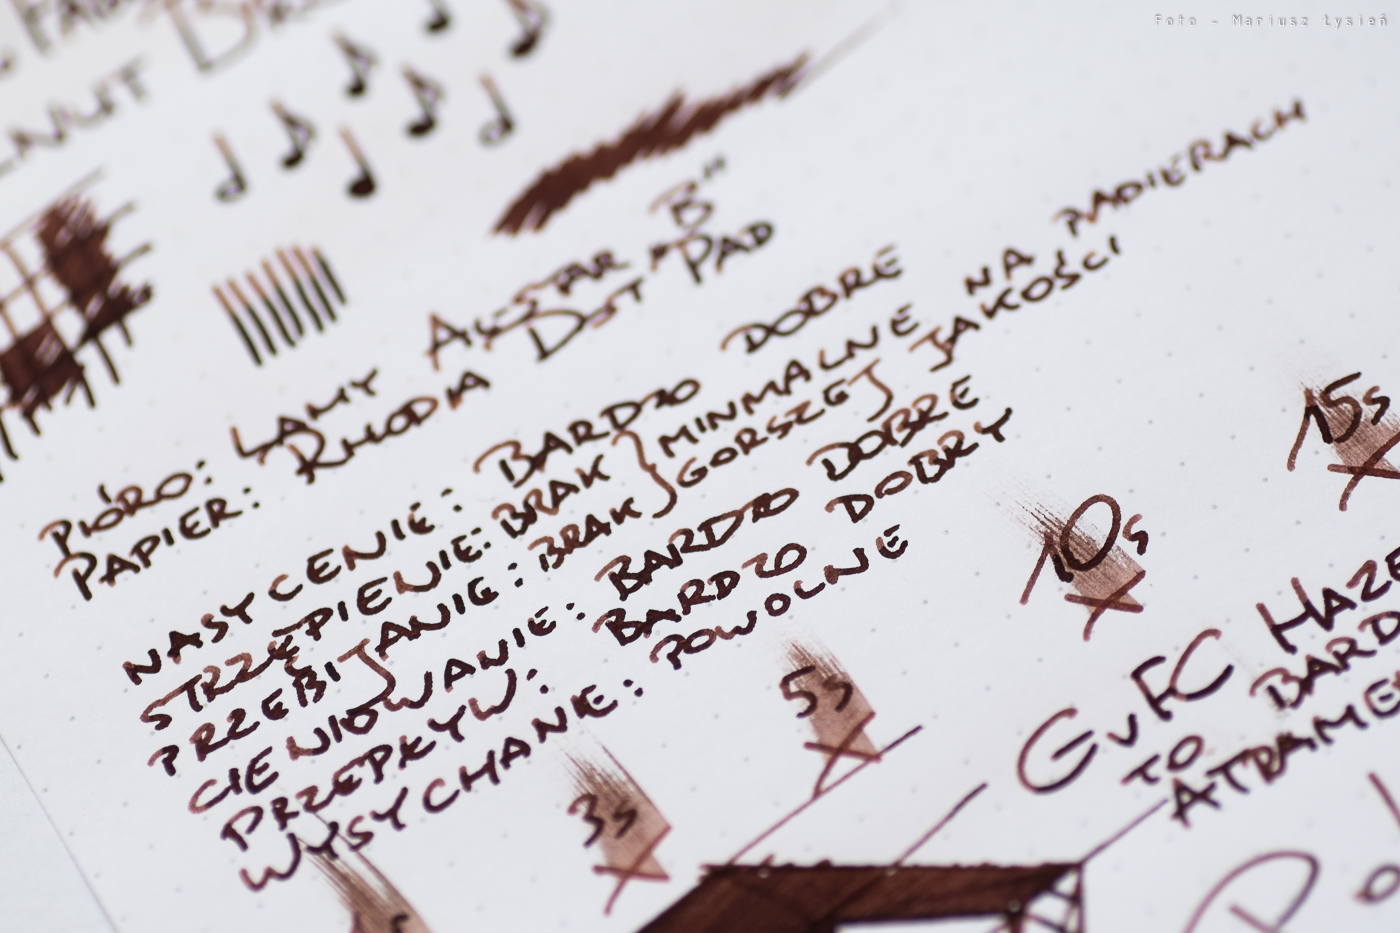 Foto - Mariusz Łysień
PIÓRO: LAMY AL-STAR „B"
PAPIER: RHODIA DOT PAD
NASYCENIE: BARDZO DOBRE
STRZĘPIENIE: BRAK } MINMALNE NA PAPIERACH
PRZEBIJANIE: BRAK } GORSZEJ JAKOŚCI
CIENIOWANIE: BARDZO DOBRE
PRZEPŁYW: BARDZO DOBRY
WYSYCHANIE: POWOLNE
15s
10s
5s
3s
GvFC HAZE
TO BARD
ATRAME